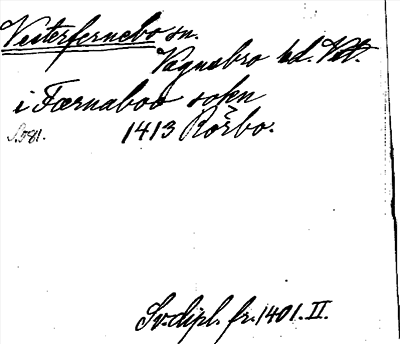 Vesterfernebo sn.
Vagnsbro hd. Vstl.
i Færnaboo sokn
S. 581. 1413 Rørbo.
Sv. dipl. fr. 1401. II.